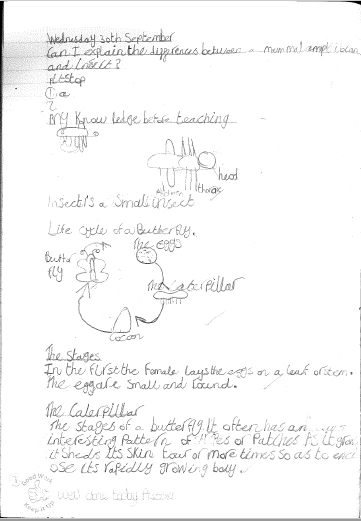 Wednesday 30th September
Can I explain the differences between a mammal amphibian
and Insect?
Pit Stop
① a
2
My Knowledge before teaching
head
thorax
Insect is a Small insect
Life cycle of a Butterfly.
The eggs
Butter
fly
The Caterpillar
Cocoon
The Stages
In the first the Female lays the eggs on a leaf or stem.
The egg are Small and round.
The Caterpillar
The stages of a butterfly It often has an
interesting Pattern of or Patches As it grow
it sheds its skin four or more times so as to enc
ose its rapidly growing body.
Good Work
Keep it Up
Well done today